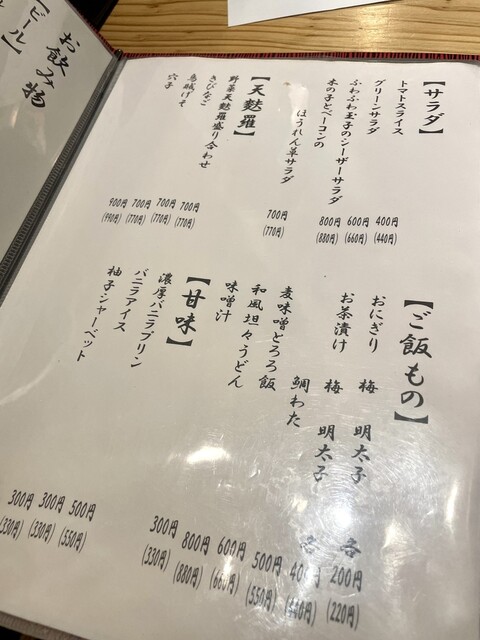 【サラダ】
トマトスライス 400円 (440円)
グリーンサラダ 600円 (660円)
ふわふわ玉子のシーザーサラダ 800円 (880円)
木の子とベーコンの
ほうれん草サラダ 700円 (770円)
【天麩羅】
野菜天麩羅盛り合わせ 700円 (770円)
きびなご 700円 (770円)
烏賊げそ 700円 (770円)
穴子 900円 (990円)
【ご飯もの】
おにぎり 梅 明太子 各 200円 (220円)
お茶漬け 梅 明太子 各 400円 (440円)
鯛わた 500円 (550円)
麦味噌とろろ飯 600円 (660円)
和風坦々うどん 800円 (880円)
味噌汁 300円 (330円)
【甘味】
濃厚バニラプリン 500円 (550円)
バニラアイス 300円 (330円)
柚子シャーベット 300円 (330円)
お飲み物
【ビール】